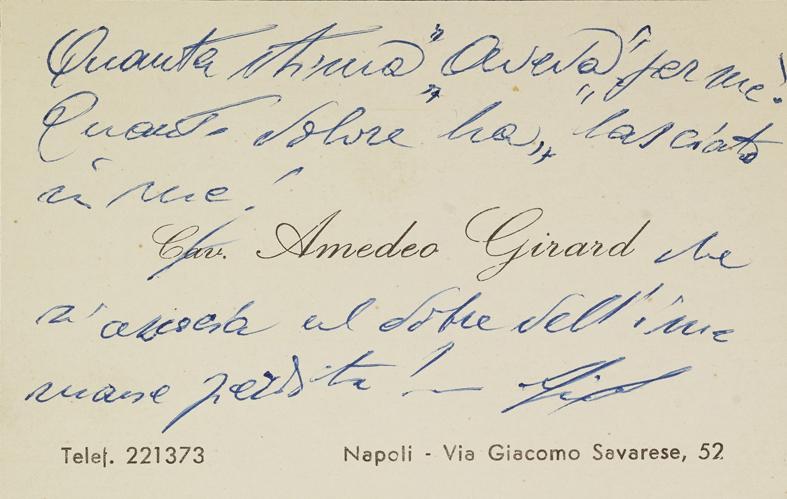 Quanta stima "aveva" per me!
Quanto dolore ha „ lasciato
in me!
Cav. Amedeo Girard che
s'associa al dolore dell'im
mane perdita!
Telef. 221373 Napoli - Via Giacomo Savarese, 52